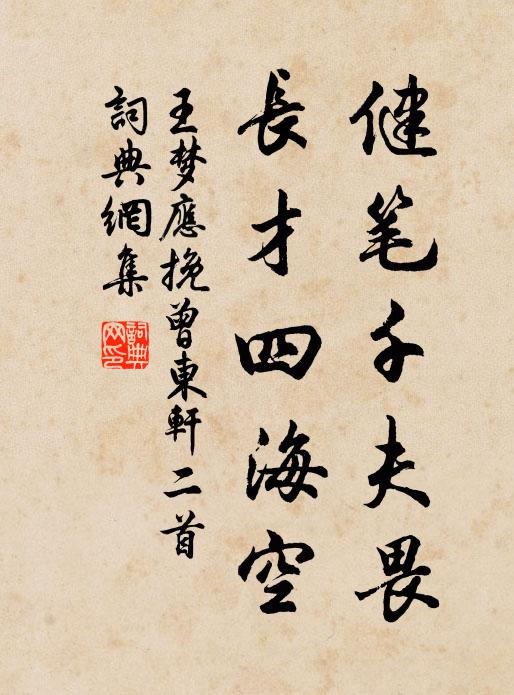 健笔千夫畏
長才四海空
王梦應挽曾東軒二首
詞典網集
詞典网印